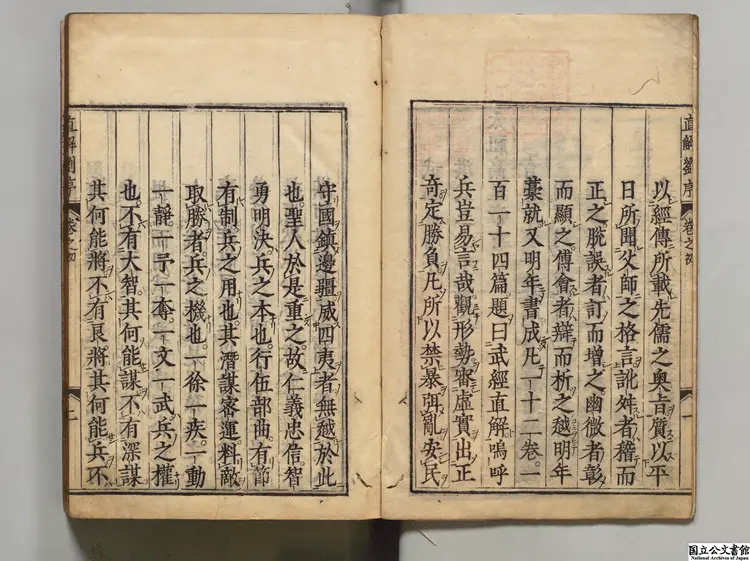 以經傳所載先儒之奧旨質以平
日所聞父師之格言訛舛者稽而
正之脫誤者訂而增之幽微者彰
而顯之傅會者辯而析之越明年
藁就又明年書成凡一十二卷一
百一十四篇題曰武經直解嗚呼
兵豈易言哉觀形勢審虛實出正
奇定勝負凡所以禁暴弭亂安民
直解劉序 卷之初 一
守國鎮邊疆威四夷者無越於此
也聖人於是重之故仁義忠信智
勇明決兵之本也行伍部曲有節
有制兵之用也其潛謀密運料敵
取勝者兵之機也一徐一疾一動
一靜一予一奪一文一武兵之權
也不有大智其何能謀不有深謀
其何能將不有良將其何能兵不
直解劉序 卷之初 二
国立公文書館
National Archives of Japan